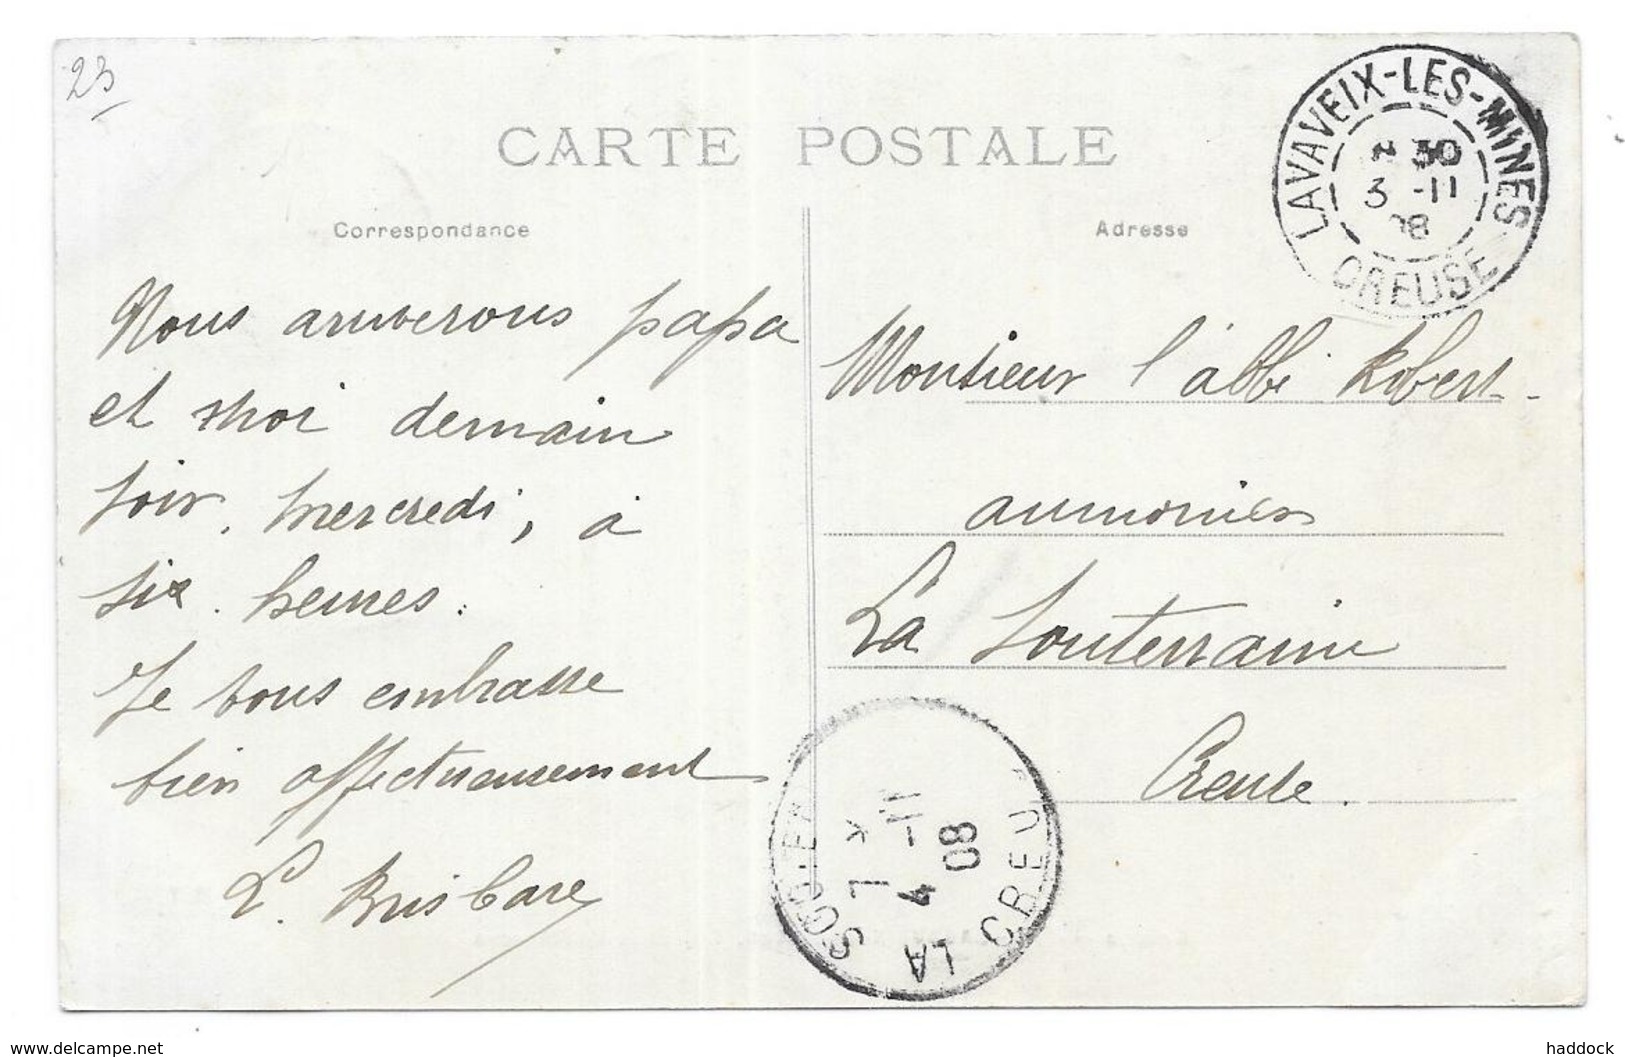 23
CARTE POSTALE
Correspondance
Adresse
LAVAVEIX-LES-MINES
30
3 -11
08
CREUSE
Nous arriverons papa
et moi demain
soir, mercredi, à
six heures.
Je vous embrasse
bien affectueusement
L. Brisbare
Monsieur l'abbé Robert
aumonier
La Souterraine
Creuse.
LA SOUTER
4 -11
08
CREU
www.delcampe.net
haddock